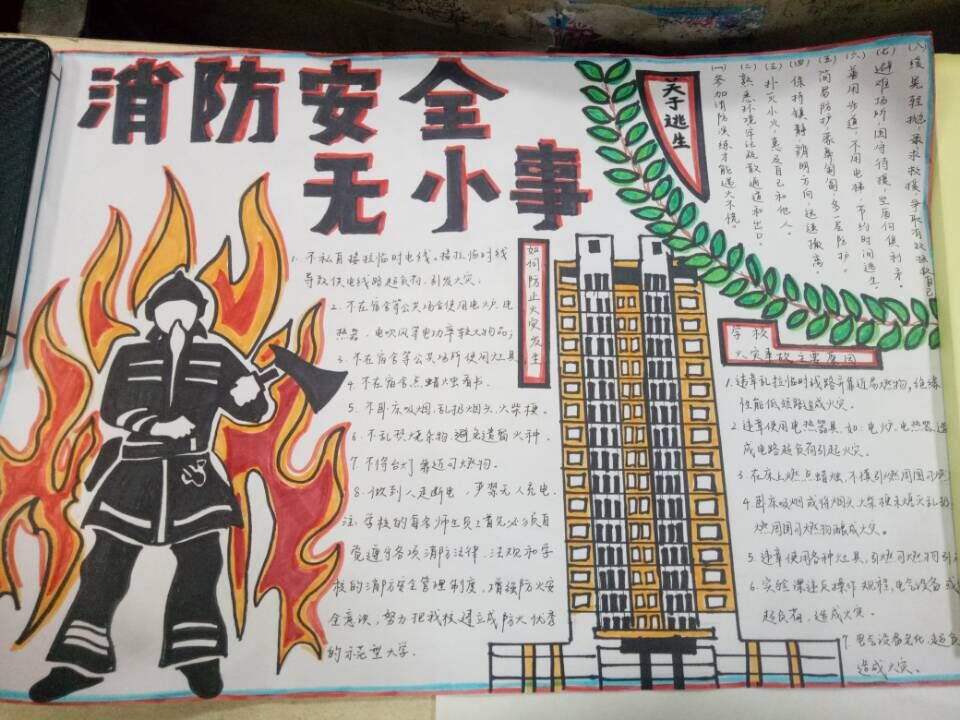 消防安全
无小事
如何防止火灾发生
1. 不私自接拉临时电线，接拉临时线
导致供电线路超负荷，引发火灾；
2. 不在宿舍等公共场合使用电炉、电
热器、电吹风等电功率较大物品；
3. 不在宿舍等公共场所使用灶具
4. 不在宿舍点蜡烛看书
5. 不卧床吸烟，乱扔烟头、火柴梗。
6. 不乱烧杂物，避免遗留火种。
7. 不将台灯靠近可燃物。
8. 做到人走断电，严禁无人充电。
注：学校的每名师生员工首先必须自
觉遵守各项消防法律、法规和学
校的消防安全管理制度，增强防火安
全意识，努力把我校建立成防火优秀
的示范型大学.
关于逃生
(一)参加消防演练才能遇火不慌。
(二)熟悉环境牢记疏散通道和出口。
(三)扑灭小火，惠及自己和他人。
(四)保持镇静，辨明方向，迅速撤离。
(五)简易防护，蒙鼻匍匐，多一层防护。
(六)善用步道，不用电梯，节约时间逃生。
(七)避难场所，固守待援，坚盾何惧利矛。
(八)缓晃轻抛，寻求救援，争取有效拯救自己
学校
火灾事故主要原因
1. 违章乱拉临时线路并靠近易燃物，绝缘
性能低短路造成火灾。
2. 违章使用电热器具，如：电炉、电热器，造
成电路超负荷引起火灾。
3. 在床上燃点蜡烛，不慎引燃周围可燃
4. 卧床吸烟或将烟头火柴梗未熄灭乱扔
燃周围可燃物酿成火灾。
5. 违章使用各种灶具，引燃可燃物
6. 实验课违反操作规程，电气设备
超负荷，造成火灾。
7. 电气设备老化，超负
造成火灾。